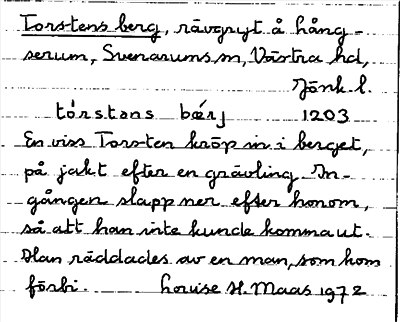 Torstens berg, rävgryt å hång-
serum, Svenarums sn, Västra hd,
Jönk. l.
tórstans bǽrj 1203
En viss Torsten kröp in i berget,
på jakt efter en grävling. In-
gången slapp ner efter honom,
så att han inte kunde komma ut.
Han räddades av en man, som kom
förbi. Louise H. Maas 1972